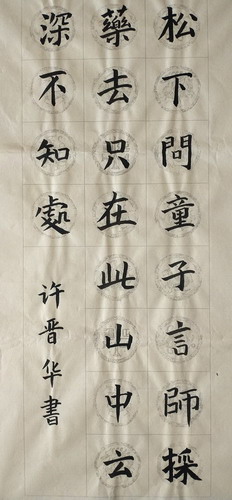 松下問童子言師採
藥去只在此山中云
深不知處
许晋华書